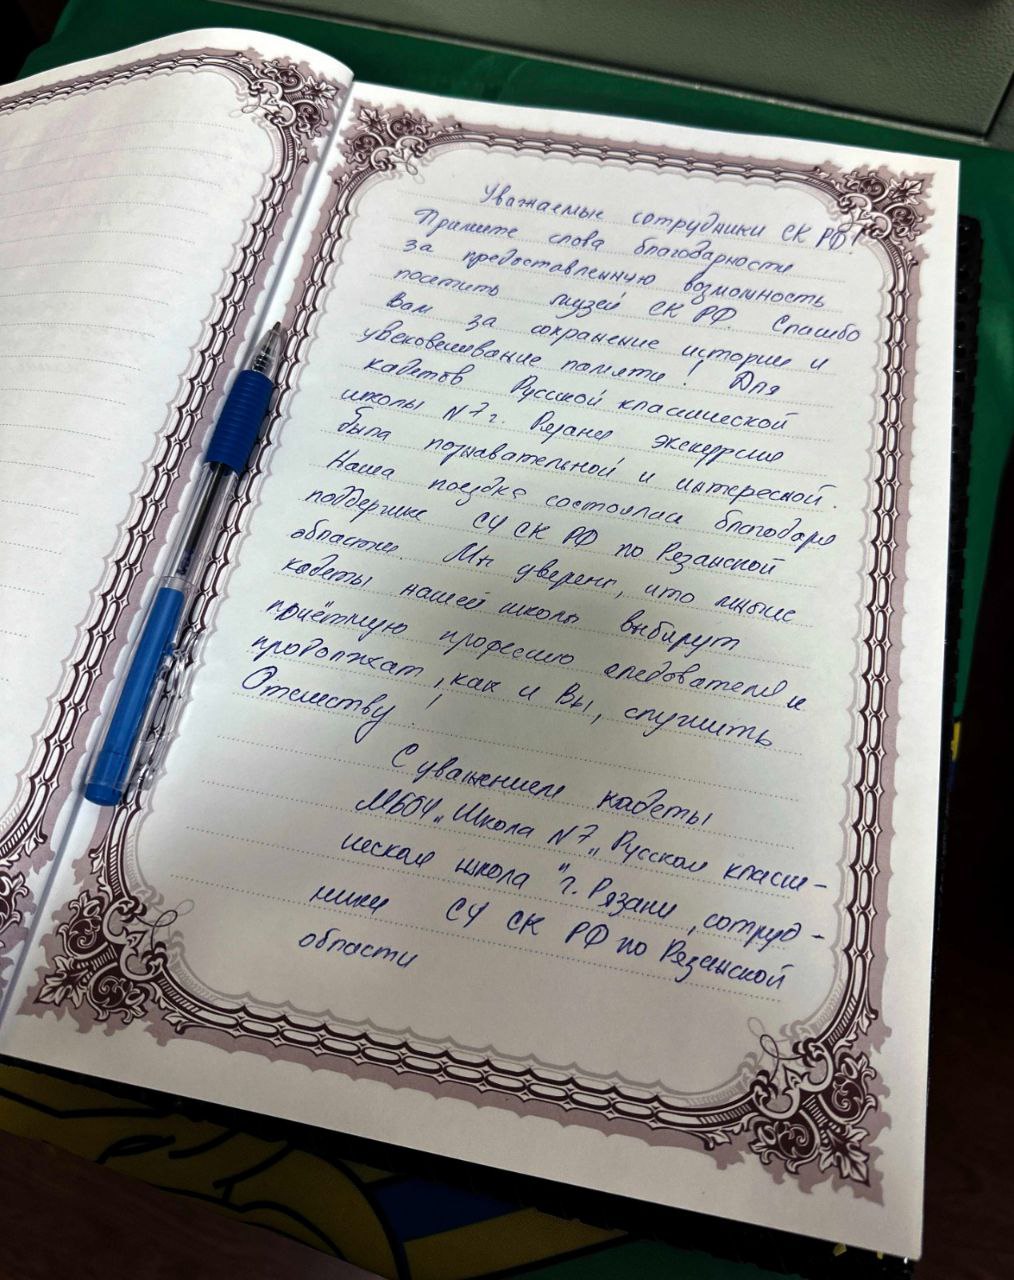 Уважаемые сотрудники СК РФ!
Примите слова благодарности
за предоставленную возможность
посетить музей СК РФ. Спасибо
Вам за сохранение истории и
увековечивание памяти! Для
кадетов Русской классической
школы N7 г. Рязани экскурсия
была познавательной и интересной.
Наша поездка состоялась благодаря
поддержке СУ СК РФ по Рязанской
области. Мы уверены, что многие
кадеты нашей школы выбирут
профессию следователя и
продолжат, как и Вы, служить
Отечеству!
С уважением кадеты
МБОУ „Школа N7 „Русская класси-
ческая школа" г. Рязани, сотруд-
ники СУ СК РФ по Рязанской
области